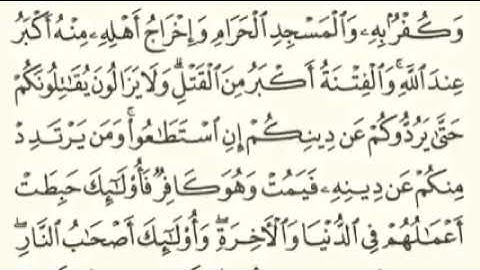 وَكُفْرٌۢ بِهِۦ وَٱلْمَسْجِدِ ٱلْحَرَامِ وَإِخْرَاجُ أَهْلِهِۦ مِنْهُ أَكْبَرُ
عِندَ ٱللَّهِۚ وَٱلْفِتْنَةُ أَكْبَرُ مِنَ ٱلْقَتْلِۗ وَلَا يَزَالُونَ يُقَـٰتِلُونَكُمْ
حَتَّىٰ يَرُدُّوكُمْ عَن دِينِكُمْ إِنِ ٱسْتَطَـٰعُوا۟ۚ وَمَن يَرْتَدِدْ
مِنكُمْ عَن دِينِهِۦ فَيَمُتْ وَهُوَ كَافِرٌ فَأُو۟لَـٰٓئِكَ حَبِطَتْ
أَعْمَـٰلُهُمْ فِى ٱلدُّنْيَا وَٱلْـَٔاخِرَةِۖ وَأُو۟لَـٰٓئِكَ أَصْحَـٰبُ ٱلنَّارِۖ